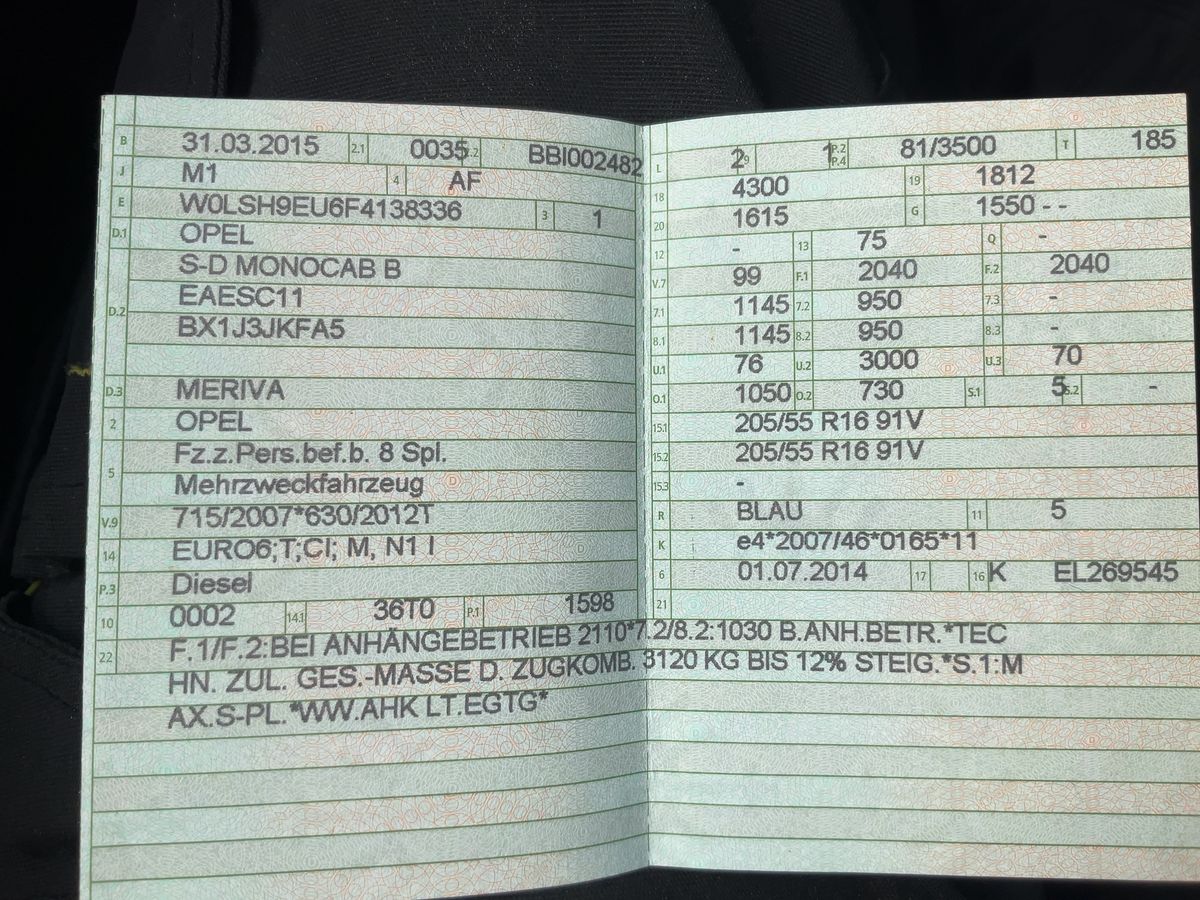 B 31.03.2015 2.1 0035 2.2 BBI002482
J M1 4 AF
E W0LSH9EU6F4138336 3 1
D.1 OPEL
S-D MONOCAB B
D.2 EAESC11
BX1J3JKFA5
D.3 MERIVA
2 OPEL
5 Fz.z.Pers.bef.b. 8 Spl.
Mehrzweckfahrzeug
V.9 715/2007*630/2012T
14 EURO6;T;CI; M, N1 I
P.3 Diesel
10 0002 14.1 36T0 P.1 1598
L 2 9 1 P.2 P.4 81/3500 T 185
18 4300 19 1812
20 1615 G 1550 - -
12 - 13 75 Q -
V.7 99 F.1 2040 F.2 2040
7.1 1145 7.2 950 7.3 -
8.1 1145 8.2 950 8.3 -
U.1 76 U.2 3000 U.3 70
O.1 1050 O.2 730 S.1 5 S.2 -
15.1 205/55 R16 91V
15.2 205/55 R16 91V
15.3 -
R BLAU 11 5
K e4*2007/46*0165*11
6 01.07.2014 17 16 K EL269545
21
22 F.1/F.2:BEI ANHÄNGEBETRIEB 2110*7.2/8.2:1030 B.ANH.BETR.*TEC
HN. ZUL. GES.-MASSE D. ZUGKOMB. 3120 KG BIS 12% STEIG.*S.1:M
AX.S-PL.*WW.AHK LT.EGTG*